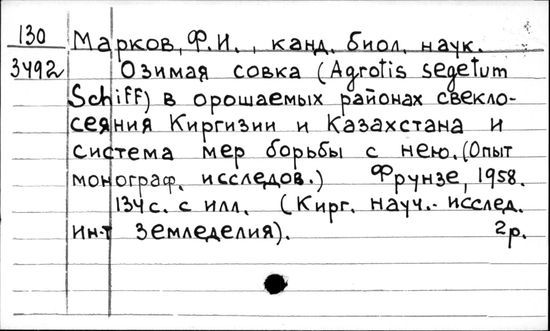 130 Марков, Ф.И., канд. биол. наук.
3492 Озимая совка (Agrotis segetum
Schiff) в орошаемых районах свекло-
сеяния Киргизии и Казахстана и
система мер борьбы с нею. (Опыт
монограф. исследов.) Фрунзе, 1958.
134 с. с илл. (Кирг. науч.- исслед.
ин-т земледелия). 2р.